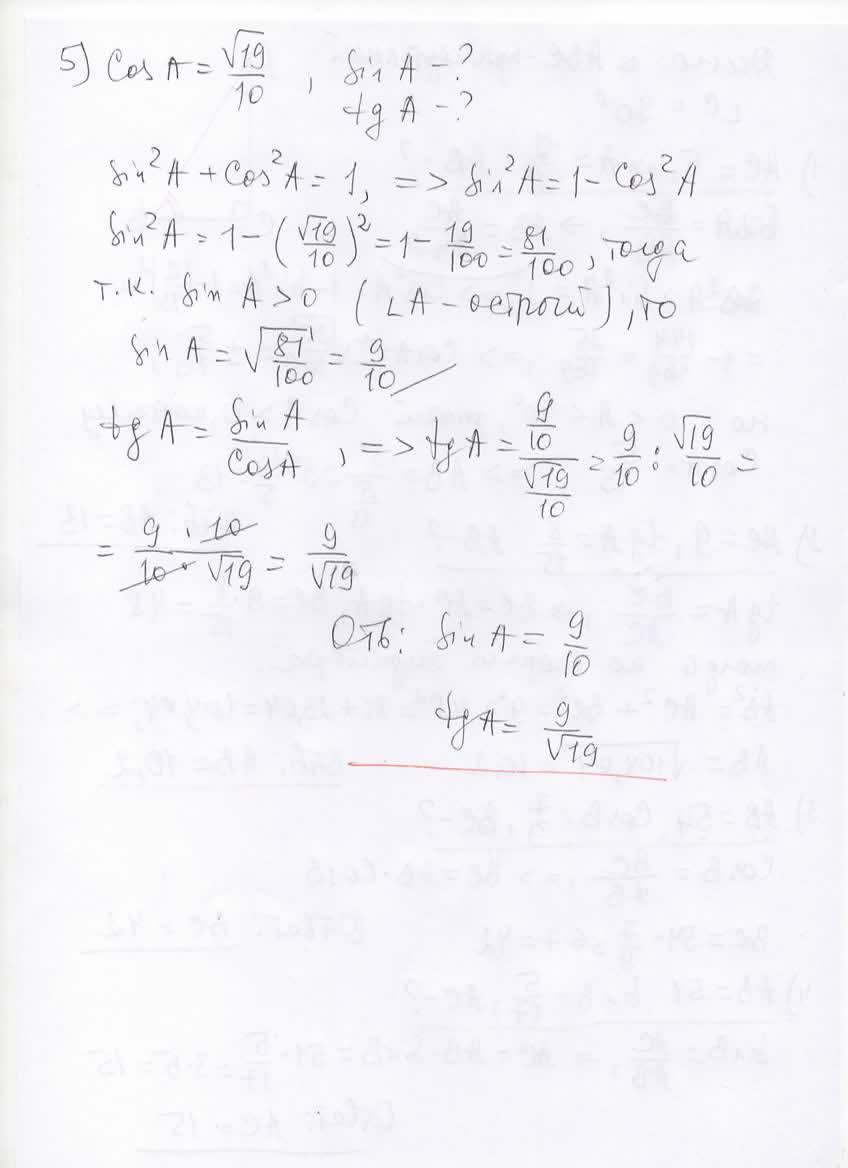 5) Cos A = √19/10, Sin A - ?
tg A - ?
Sin²A + Cos²A = 1, => Sin²A = 1 - Cos²A
Sin²A = 1 - (√19/10)² = 1 - 19/100 = 81/100, тогда
т.к. Sin A > 0 (∠A - острый), то
Sin A = √(81/100) = 9/10
tg A = Sin A/Cos A, => tg A = (9/10)/(√19/10) = 9/10 : √19/10 =
= (9 · 10)/(10 · √19) = 9/√19
Отв: Sin A = 9/10
tg A = 9/√19